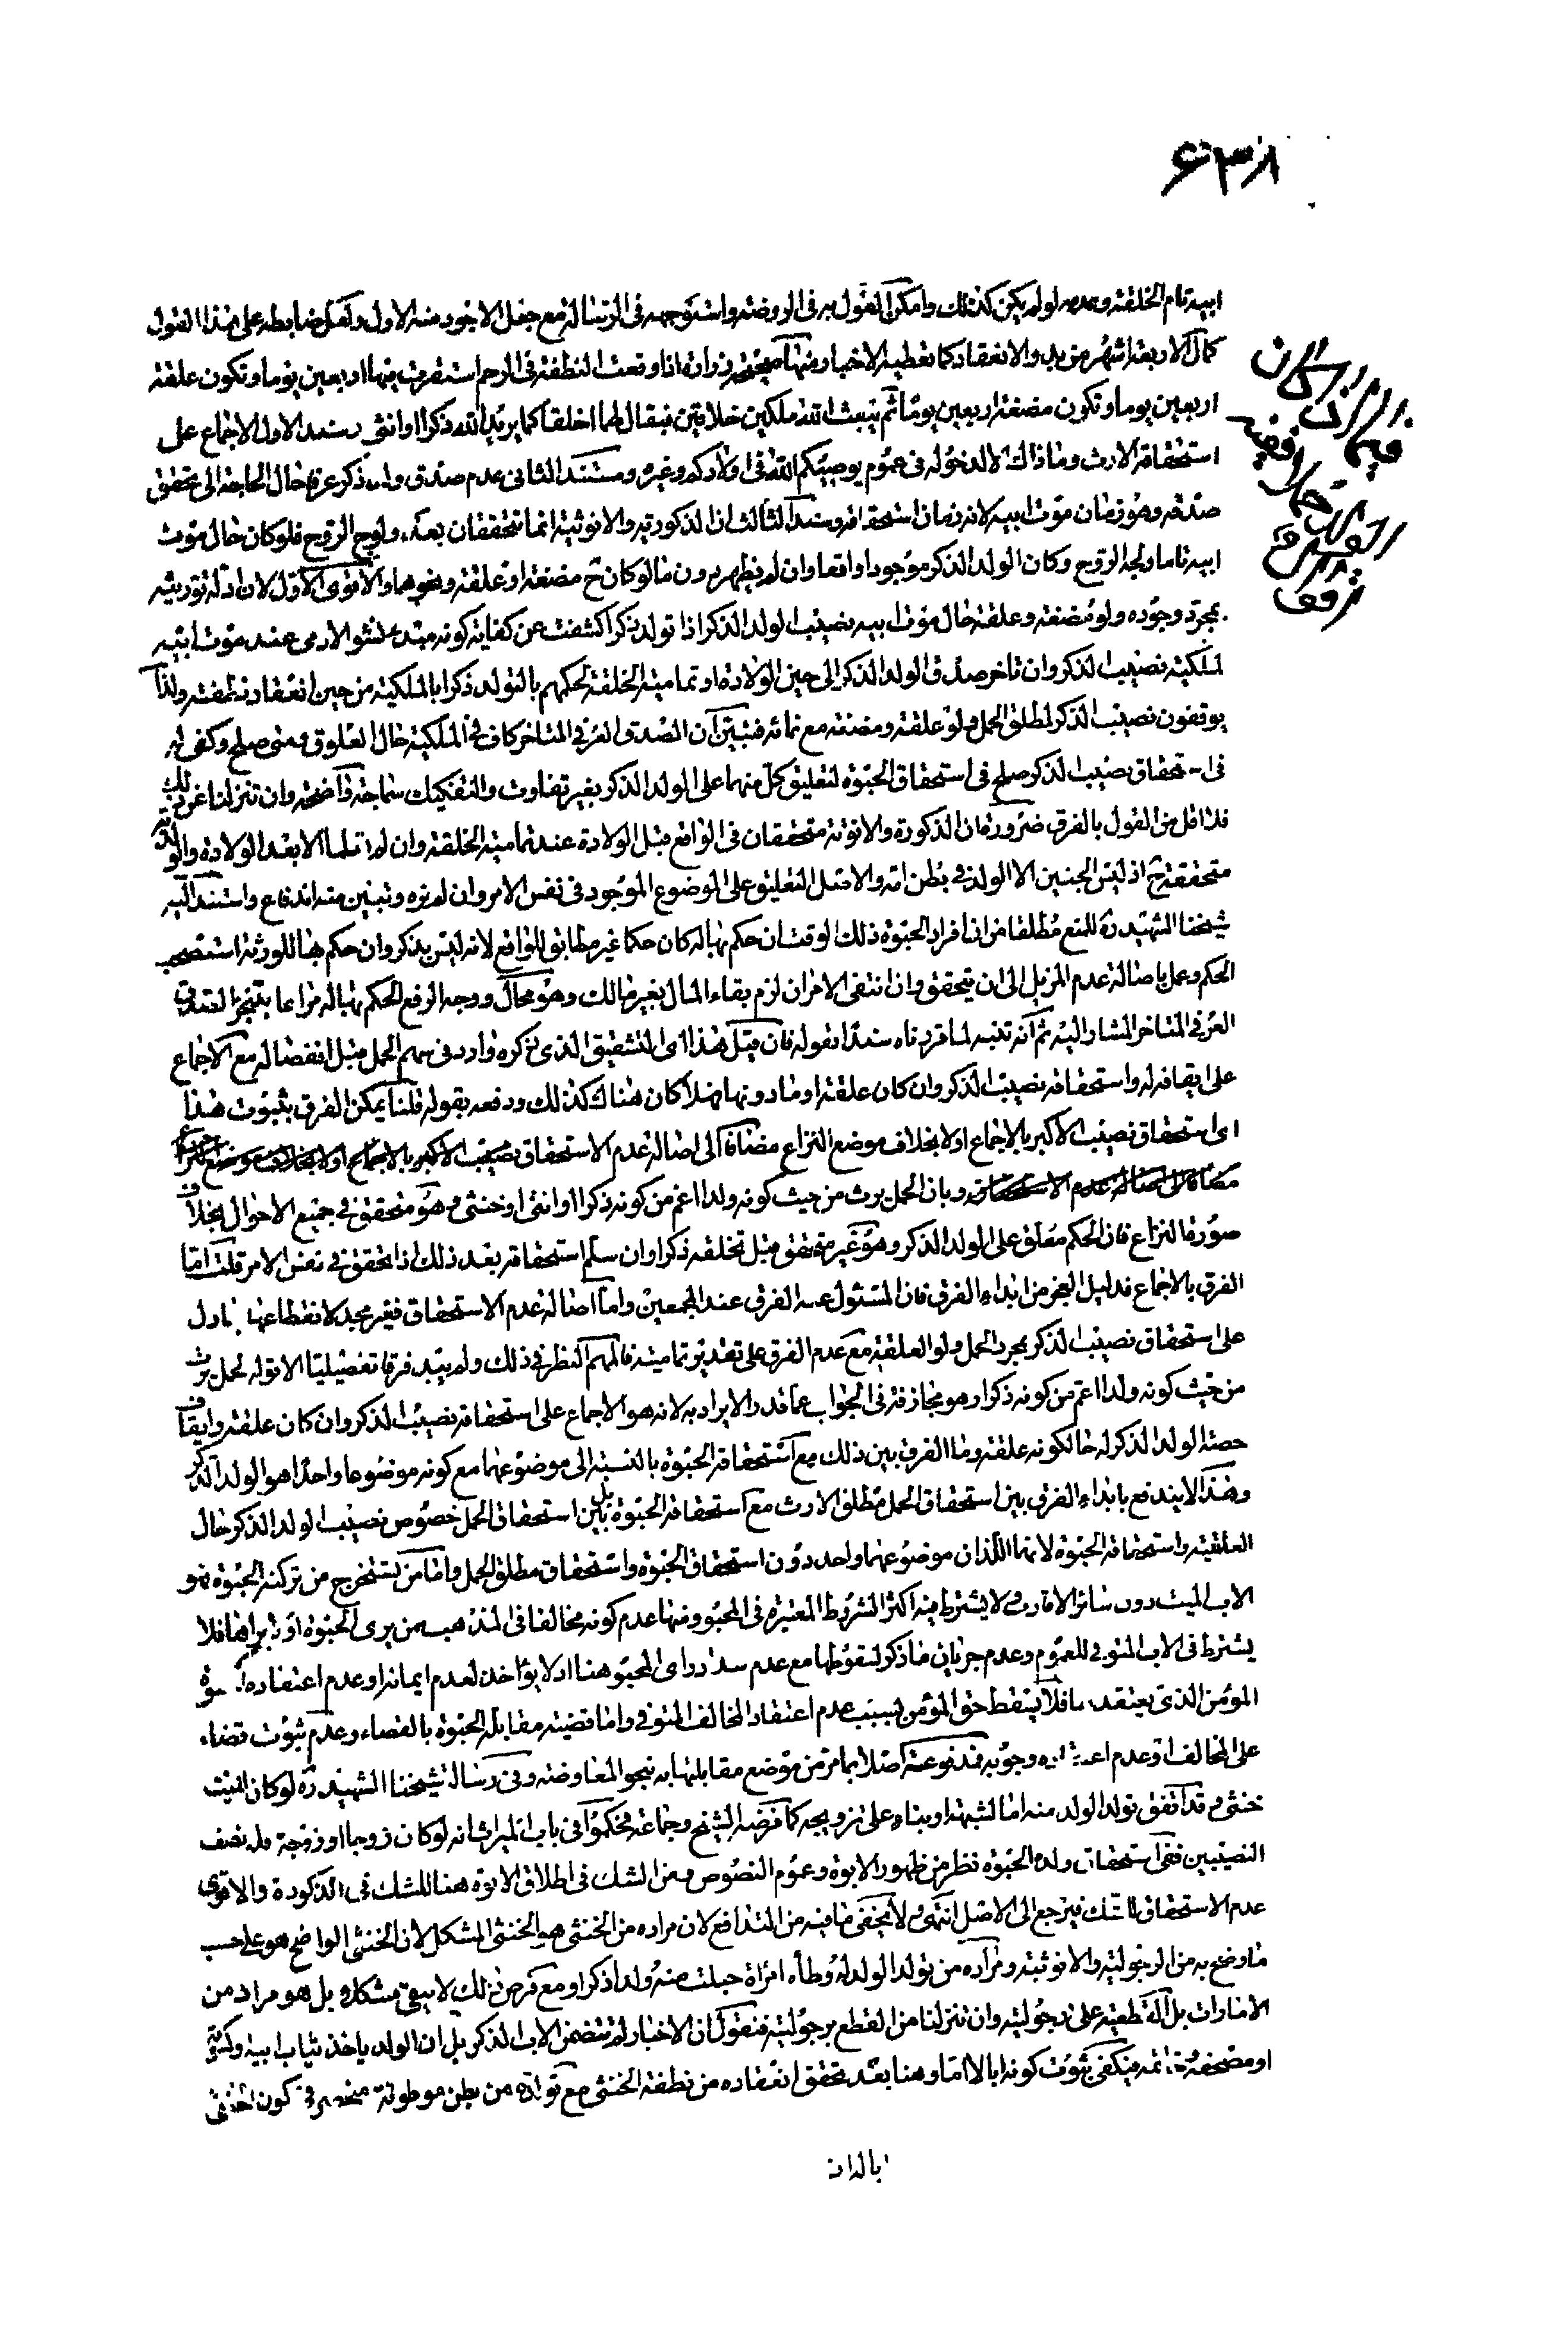 ۶۳۸
ابيه تام الخلقة وعدمه لو لم يكن كذلك وامكن القول به في الروضة واستوجهه في الرسالة مع جعل الاجود منه الاول ولعل ضابطه على هذا القول
كمال الاربعة اشهر من بدو الانعقاد كما تعطيه الاخبار ومنها صحيحة زرارة اذا وقعت النطفة في الرحم استقرت فيها اربعين يوما وتكون علقة
اربعين يوما وتكون مضغة اربعين يوما ثم يبعث الله ملكين خلاقين فيقال لهما اخلقا كما يريد الله ذكرا او انثى ومستند الاول الاجماع على
استحقاقه الارث وما ذاك الا لدخوله في عموم يوصيكم الله في اولادكم وغيره ومستند الثاني عدم صدق ولد ذكر عرفا حال الحاجة الى تحقق
صدقه وهو زمان موت ابيه لانه زمان استحقاقه ومستند الثالث ان الذكورية والانوثية انما تتحققان بعد ولوج الروح فلو كان حال موت
ابيه تاما ولجه الروح وكان الولد الذكر موجودا واقعا وان لم يظهر دون ما لو كان ح مضغة او علقة ونحوهما والاقوى الاول لان ادلة توريثه
بمجرد وجوده ولو مضغة وعلقة حال موت ابيه نصيب الولد الذكر اذا تولد ذكرا كشفت عن كفاية كونه مبدء نشو الادمي عند موت ابيه
لملكية نصيب الذكر وان تاخر صدق الولد الذكر الى حين الولادة او تمامية الخلقة لحكمهم بالتولد ذكرا بالملكية من حين انعقاد نطفته ولذا
يوقفون نصيب الذكر لمطلق الحمل ولو علقة ومضغة مع نمائه فتبين ان الصدق العرفي المتاخر كاف في الملكية حال العلوق ومتى صلح وكفى
في استحقاق نصيب الذكر صلح في استحقاق الحبوة لتعليق كل منهما على الولد الذكر بغير تفاوت والتفكيك سماجته واضحة وان تنزلنا عن ذلك
فلا اقل من القول بالفرق ضرورة ان الذكورة والانوثة متحققان في الواقع قبل الولادة عند تمامية الخلقة وان لم تعلما الا بعد الولادة والولدية
متحققة ح اذ ليس الجنين الا الولد في بطن امه والاصل التعليق على الموضوع الموجود في نفس الامر وان لم نره وتبين منه اندفاع واستند اليه
شيخنا الشهيد ره للمنع مطلقا من ان افراد الحبوة ذلك الوقت ان حكم بها له كان حكما غير مطابق للواقع لانه ليس بذكر وان حكم بها للورثة استصحب
الحكم وعمل باصالة عدم المزيل الى ان يتحقق وان انتفى الامران لزم بقاء المال بغير مالك وهو محال ووجه الرفع الحكم بها له مراعا بتنجز الصدق
العرفي المتاخر المشار اليه ثم انه تنبه لما قررناه سندا بقوله فان قيل هذا اى التشقيق الذى ذكره وارد في سهم الحمل قبل انفصاله مع الاجماع
على ايقافه له واستحقاقه نصيب الذكر وان كان علقة او ما دونها فهلا كان هناك كذلك ودفعه بقوله قلنا يمكن الفرق بثبوت هذا
اى استحقاق نصيب الاكبر بالاجماع اولا بخلاف موضع النزاع مضافا الى اصالة عدم الاستحقاق نصيب الاكبر بالاجماع اولا بخلاف موضع النزاع
مضافا الى اصالة عدم الاستحقاق وبان الحمل يرث من حيث كونه ولدا اعم من كونه ذكرا او انثى او خنثى وهو متحقق في جميع الاحوال بخلاف
صورة النزاع فان الحكم معلق على الولد الذكر وهو غير متحقق قبل تخلقه ذكرا وان سلم استحقاقه بعد ذلك اذا تحقق في نفس الامر قلت اما
الفرق بالاجماع فدليل العجز من ابداء الفرق فان المسئول عنه الفرق عند المجمعين واما اصالة عدم الاستحقاق فغير مجد لانقطاعها بما دل
على استحقاق نصيب الذكر بمجرد الحمل ولو العلقة مع عدم الفرق على تقدير تماميته فالمهم النظر في ذلك ولم يبد فرقا تفصيليا الا قوله الحمل يرث
من حيث كونه ولدا اعم من كونه ذكرا وهو مجازفة في الجواب عما قدر الايراد به لانه هو الاجماع على استحقاقه نصيب الذكر وان كان علقة وايقاف
حصة الولد الذكر له حال كونه علقة وما الفرق بين ذلك مع استحقاقه الحبوة بالنسبة الى موضوعهما مع كونه موضوعا واحدا هو الولد الذكر
وهذا لا يندفع بابداء الفرق بين استحقاق الحمل مطلق الارث مع استحقاقه الحبوة بل بين استحقاق الحمل خصوص نصيب الولد الذكر حال
العلقية واستحقاقه الحبوة لانهما اللذان موضوعهما واحد دون استحقاق الحبوة واستحقاق مطلق الحمل واما من يستخرج من تركته الحبوة فهو
الاب الميت دون سائر الاقارب ولا يشترط فيه اكثر الشروط المعتبرة في المحبو ومنها عدم كونه مخالفا في المذهب من يرى الحبوة او لا يراها فلا
يشترط في الاب المتوفى للعموم وعدم جريان ما ذكر لسقوطها مع عدم سداد راى المحبو هنا اذ لا يؤاخذ لعدم ايمانه او عدم اعتقاده
المؤمن الذى يعتقدها فلا يسقط حق المؤمن بسبب عدم اعتقاد المخالف المتوفى واما قضية مقابلة الحبوة بالقضاء وعدم ثبوت قضاء
على المخالف او عدم اعتقاده وجوبه فمدفوعة اصلا بما مر من موضع مقابلتها به بنحو المعاوضة وفي رسالة شيخنا الشهيد ره لو كان الميت
خنثى وقد اتفق تولد الولد منه اما لشبهة او بناء على تزويجه كما فرضه الشيخ وجماعة فحكموا في باب الميراث انه لو كان زوجا او زوجة فله نصف
النصيبين ففى استحقاق ولده الحبوة نظر من ظهور الابوة وعموم النصوص ومن الشك في اطلاق الابوة هنا للشك في الذكورة والاقوى
عدم الاستحقاق للشك فيرجع الى الاصل انتهى ولا يخفى ما فيه من التدافع لان مراده من الخنثى هو الخنثى المشكل لان الخنثى الواضح هو على حسب
ما وضح به من الرجولية والانوثية ومراده من تولد الولد له وطأه امراة حبلت منه ولدا ذكرا ومع فرض ذلك لا يبقى مشكلا بل هو مراد من
الامارات بل القطعية على رجوليته وان تنزلنا من القطع برجوليته فنقول ان الاخبار لم تتضمن الاب الذكر بل ان الولد ياخذ ثياب ابيه وكتبه
او مصحفه وخاتمه فيكفى ثبوت كونه ابا لا اما وهنا بعد تحقق انعقاده من نطفة الخنثى مع تولده من بطن موطوئة منحصر في كون الخنثى
ابا لدان